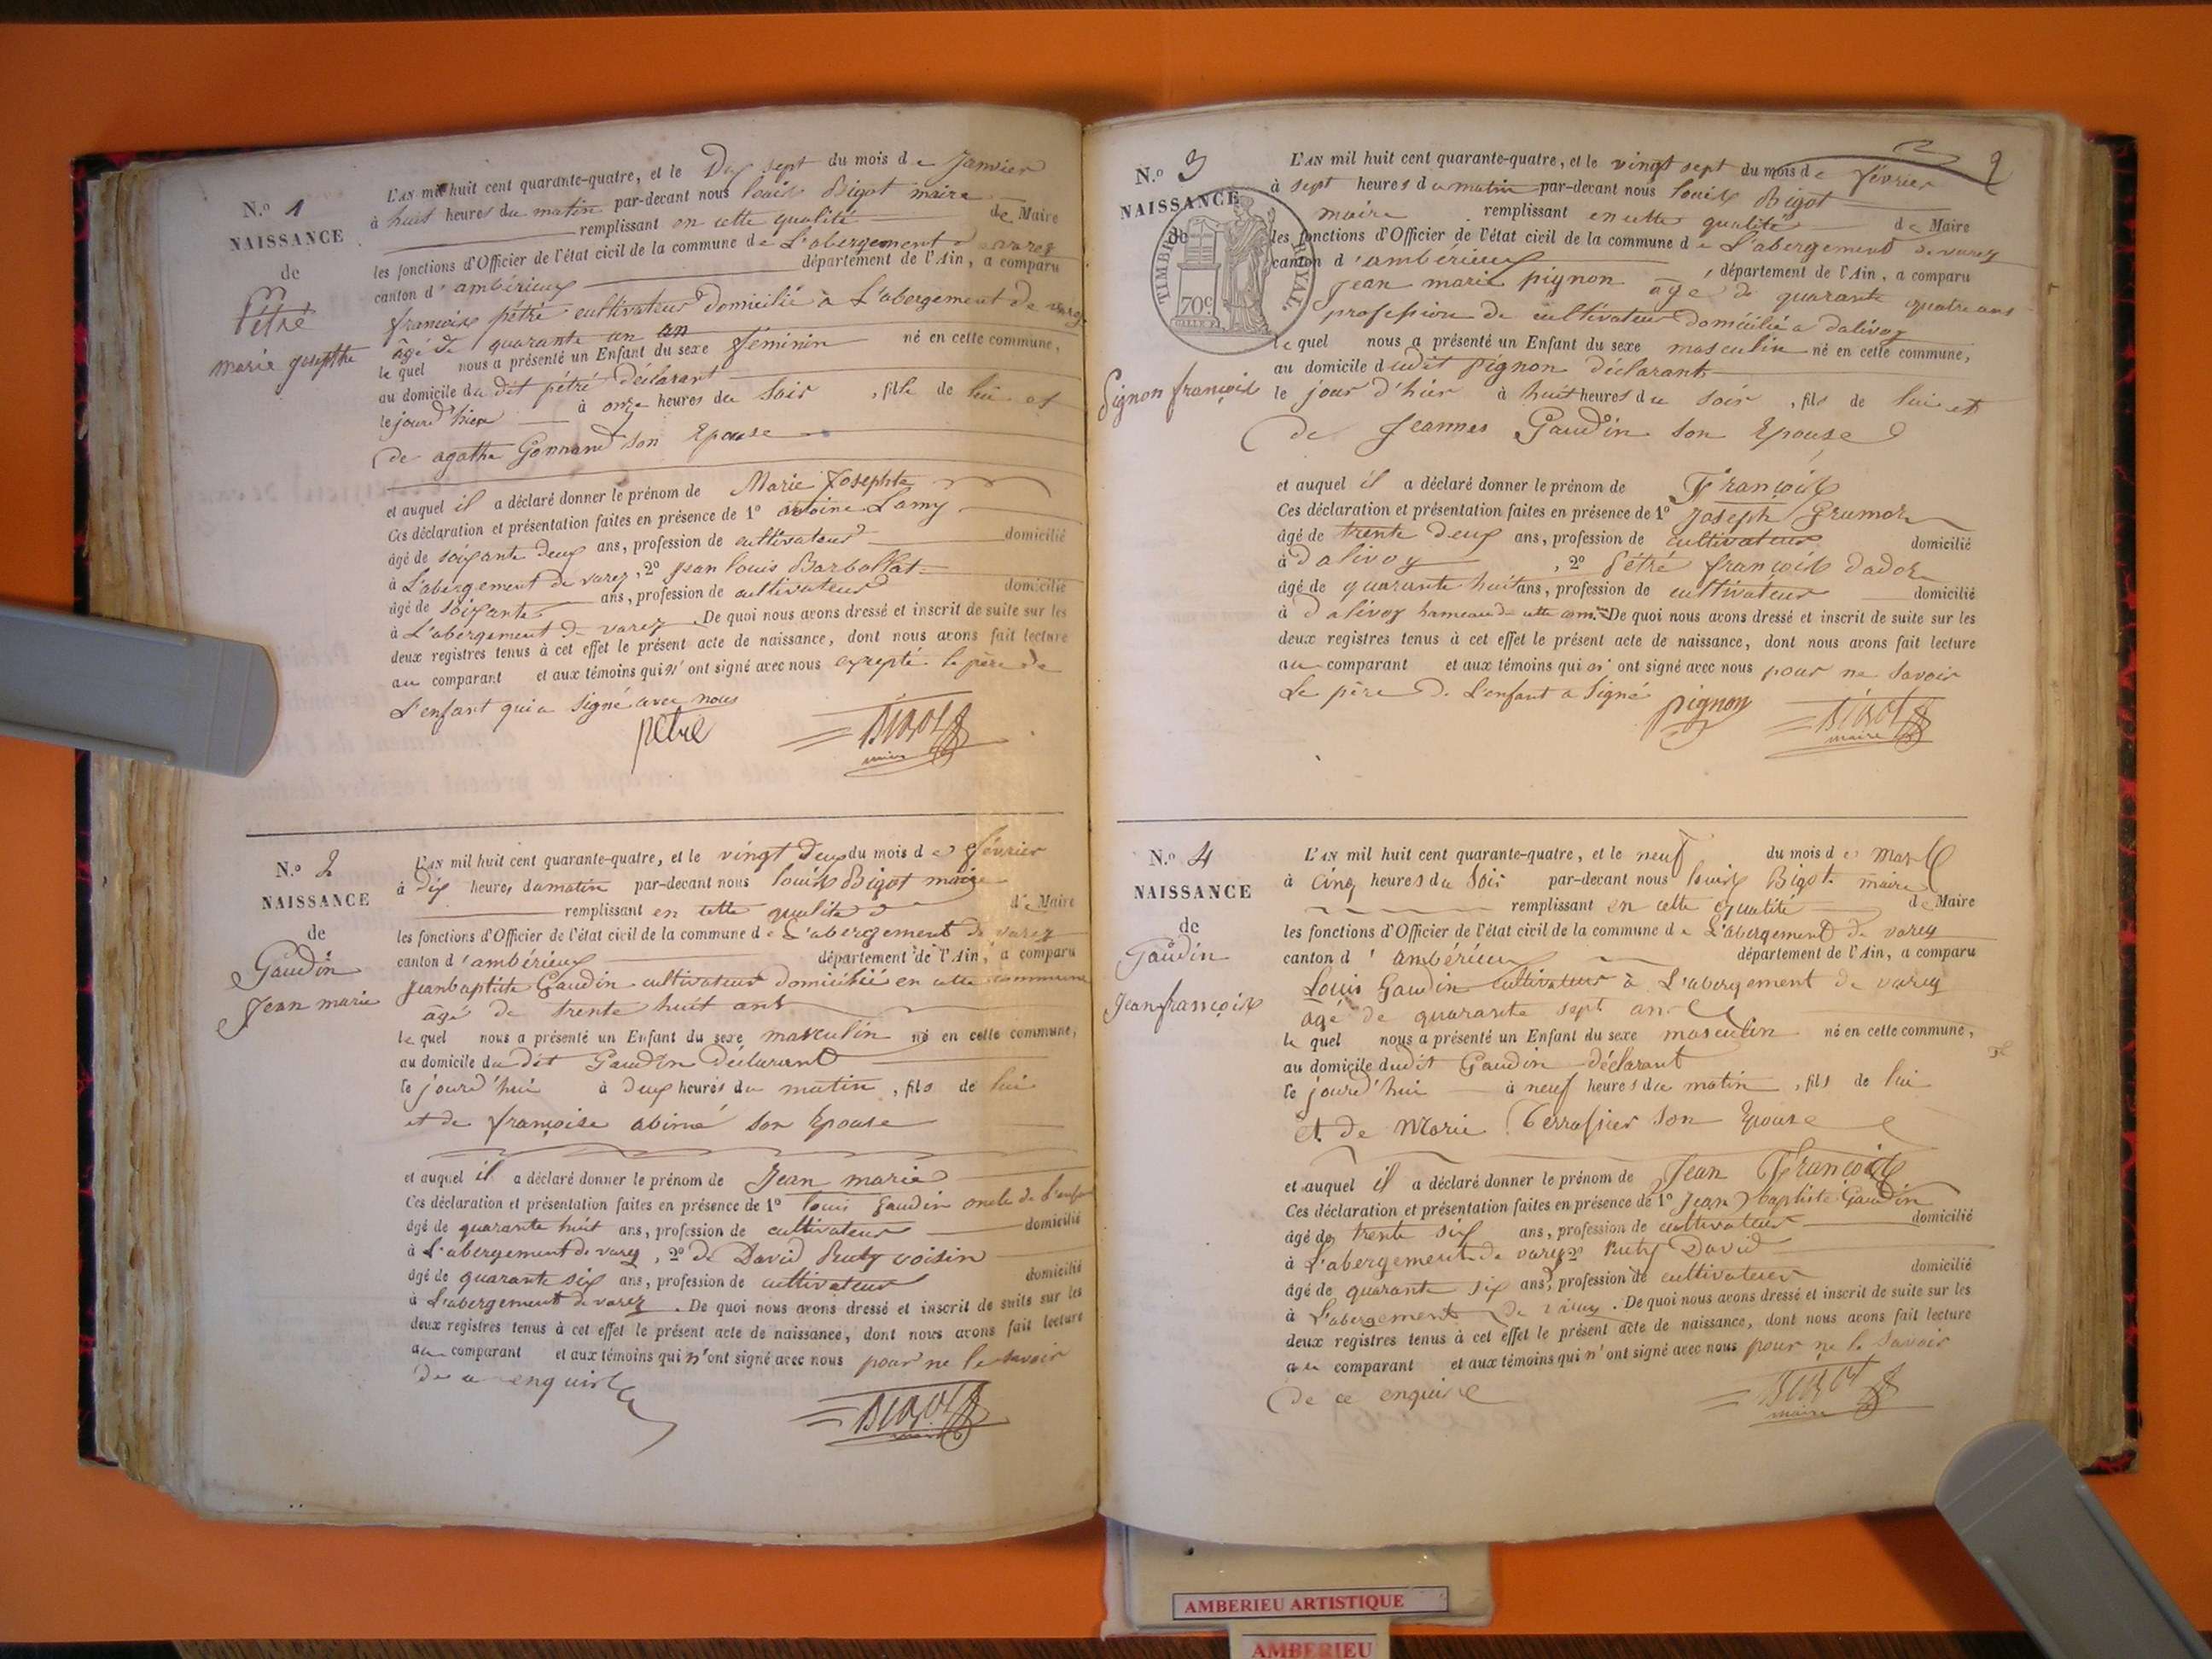 N.o 1
NAISSANCE
de
Pétré
marie josephte
L'AN mil huit cent quarante-quatre, et le Dix sept du mois de Janvier
à huit heures du matin par-devant nous louis Bigot maire
remplissant en cette qualité de Maire
les fonctions d'Officier de l'état civil de la commune de L'abergement de varey
canton d'ambérieux département de l'Ain, a comparu
francois pétré cultivateur domicilié à L'abergement de varey
âgé de quarante un an
le quel nous a présenté un Enfant du sexe féminin né en cette commune,
au domicile du dit pétré déclarant
le jour d'hier à onze heures du soir, fille de lui et
de agathe Gonnand son Epouse
et auquel il a déclaré donner le prénom de Marie Josephte
Ces déclaration et présentation faites en présence de 1º antoine Lamy
âgé de soixante deux ans, profession de cultivateur domicilié
à L'abergement de varey, 2º jean louis Barbollat
âgé de soixante ans, profession de cultivateur domicilié
à L'abergement de varey. De quoi nous avons dressé et inscrit de suite sur les
deux registres tenus à cet effet le présent acte de naissance, dont nous avons fait lecture
au comparant et aux témoins qui n'ont signé avec nous excepté le père de
L'enfant qui a signé avec nous
petre
Bigot
maire
N.o 2
NAISSANCE
de
Gaudin
Jean marie
L'AN mil huit cent quarante-quatre, et le vingt deux du mois de février
à dix heures du matin par-devant nous louis Bigot maire
remplissant en cette qualité de Maire
les fonctions d'Officier de l'état civil de la commune de L'abergement de varey
canton d'ambérieux département de l'Ain, a comparu
jean baptiste Gaudin cultivateur domicilié en cette commune
âgé de trente huit ans
le quel nous a présenté un Enfant du sexe masculin né en cette commune,
au domicile du dit Gaudin déclarant
le jourd'hui à deux heures du matin, fils de lui
et de françoise abimé son Epouse
et auquel il a déclaré donner le prénom de Jean marie
Ces déclaration et présentation faites en présence de 1º louis gaudin oncle de l'enfant
âgé de quarante huit ans, profession de cultivateur domicilié
à L'abergement de varey, 2º de David Ruty voisin
âgé de quarante six ans, profession de cultivateur domicilié
à L'abergement de varey. De quoi nous avons dressé et inscrit de suite sur les
deux registres tenus à cet effet le présent acte de naissance, dont nous avons fait lecture
au comparant et aux témoins qui n'ont signé avec nous pour ne le savoir
de ce enquis
Bigot
maire
N.o 3
NAISSANCE
de
TIMBRE ROYAL
70c
Pignon françois
2
L'AN mil huit cent quarante-quatre, et le vingt sept du mois de février
à sept heures du matin par-devant nous louis Bigot
maire remplissant en cette qualité de Maire
les fonctions d'Officier de l'état civil de la commune de L'abergement de varey
canton d'ambérieux, département de l'Ain, a comparu
Jean marie pignon âgé de quarante quatre ans
profession de cultivateur domicilié a dalivoy
le quel nous a présenté un Enfant du sexe masculin né en cette commune,
au domicile dudit Pignon déclarant
le jour d'hier à huit heures du soir, fils de lui et
de Jeannes Gaudin son Epouse
et auquel il a déclaré donner le prénom de François
Ces déclaration et présentation faites en présence de 1º Joseph Grumod
âgé de trente deux ans, profession de cultivateur domicilié
à Dalivoy, 2º Pétré françois
âgé de quarante huit ans, profession de cultivateur domicilié
à Dalivoy hameau de cette com.ne De quoi nous avons dressé et inscrit de suite sur les
deux registres tenus à cet effet le présent acte de naissance, dont nous avons fait lecture
au comparant et aux témoins qui n'ont signé avec nous pour ne savoir
Le père de L'enfant a Signé
pignon
Bigot
maire
N.o 4
NAISSANCE
de
Gaudin
Jean françois
L'AN mil huit cent quarante-quatre, et le neuf du mois de Mars
à cinq heures du Soir par-devant nous louis Bigot maire
remplissant en cette qualité de Maire
les fonctions d'Officier de l'état civil de la commune de L'abergement de varey
canton d'ambérieux département de l'Ain, a comparu
Louis Gaudin cultivateur à L'abergement de varey
âgé de quarante sept ans
le quel nous a présenté un Enfant du sexe masculin né en cette commune,
au domicile dudit Gaudin déclarant
le jourd'hui à neuf heures du matin, fils de lui
et de Marie Terrassier son Epouse
et auquel il a déclaré donner le prénom de Jean François
Ces déclaration et présentation faites en présence de 1º Jean baptiste Gaudin
âgé de trente six ans, profession de cultivateur domicilié
à L'abergement de varey 2º Ruty David
âgé de quarante six ans, profession de cultivateur domicilié
à L'abergement de varey. De quoi nous avons dressé et inscrit de suite sur les
deux registres tenus à cet effet le présent acte de naissance, dont nous avons fait lecture
au comparant et aux témoins qui n'ont signé avec nous pour ne le savoir
de ce enquis
Bigot
maire
AMBERIEU ARTISTIQUE
AMBERIEU